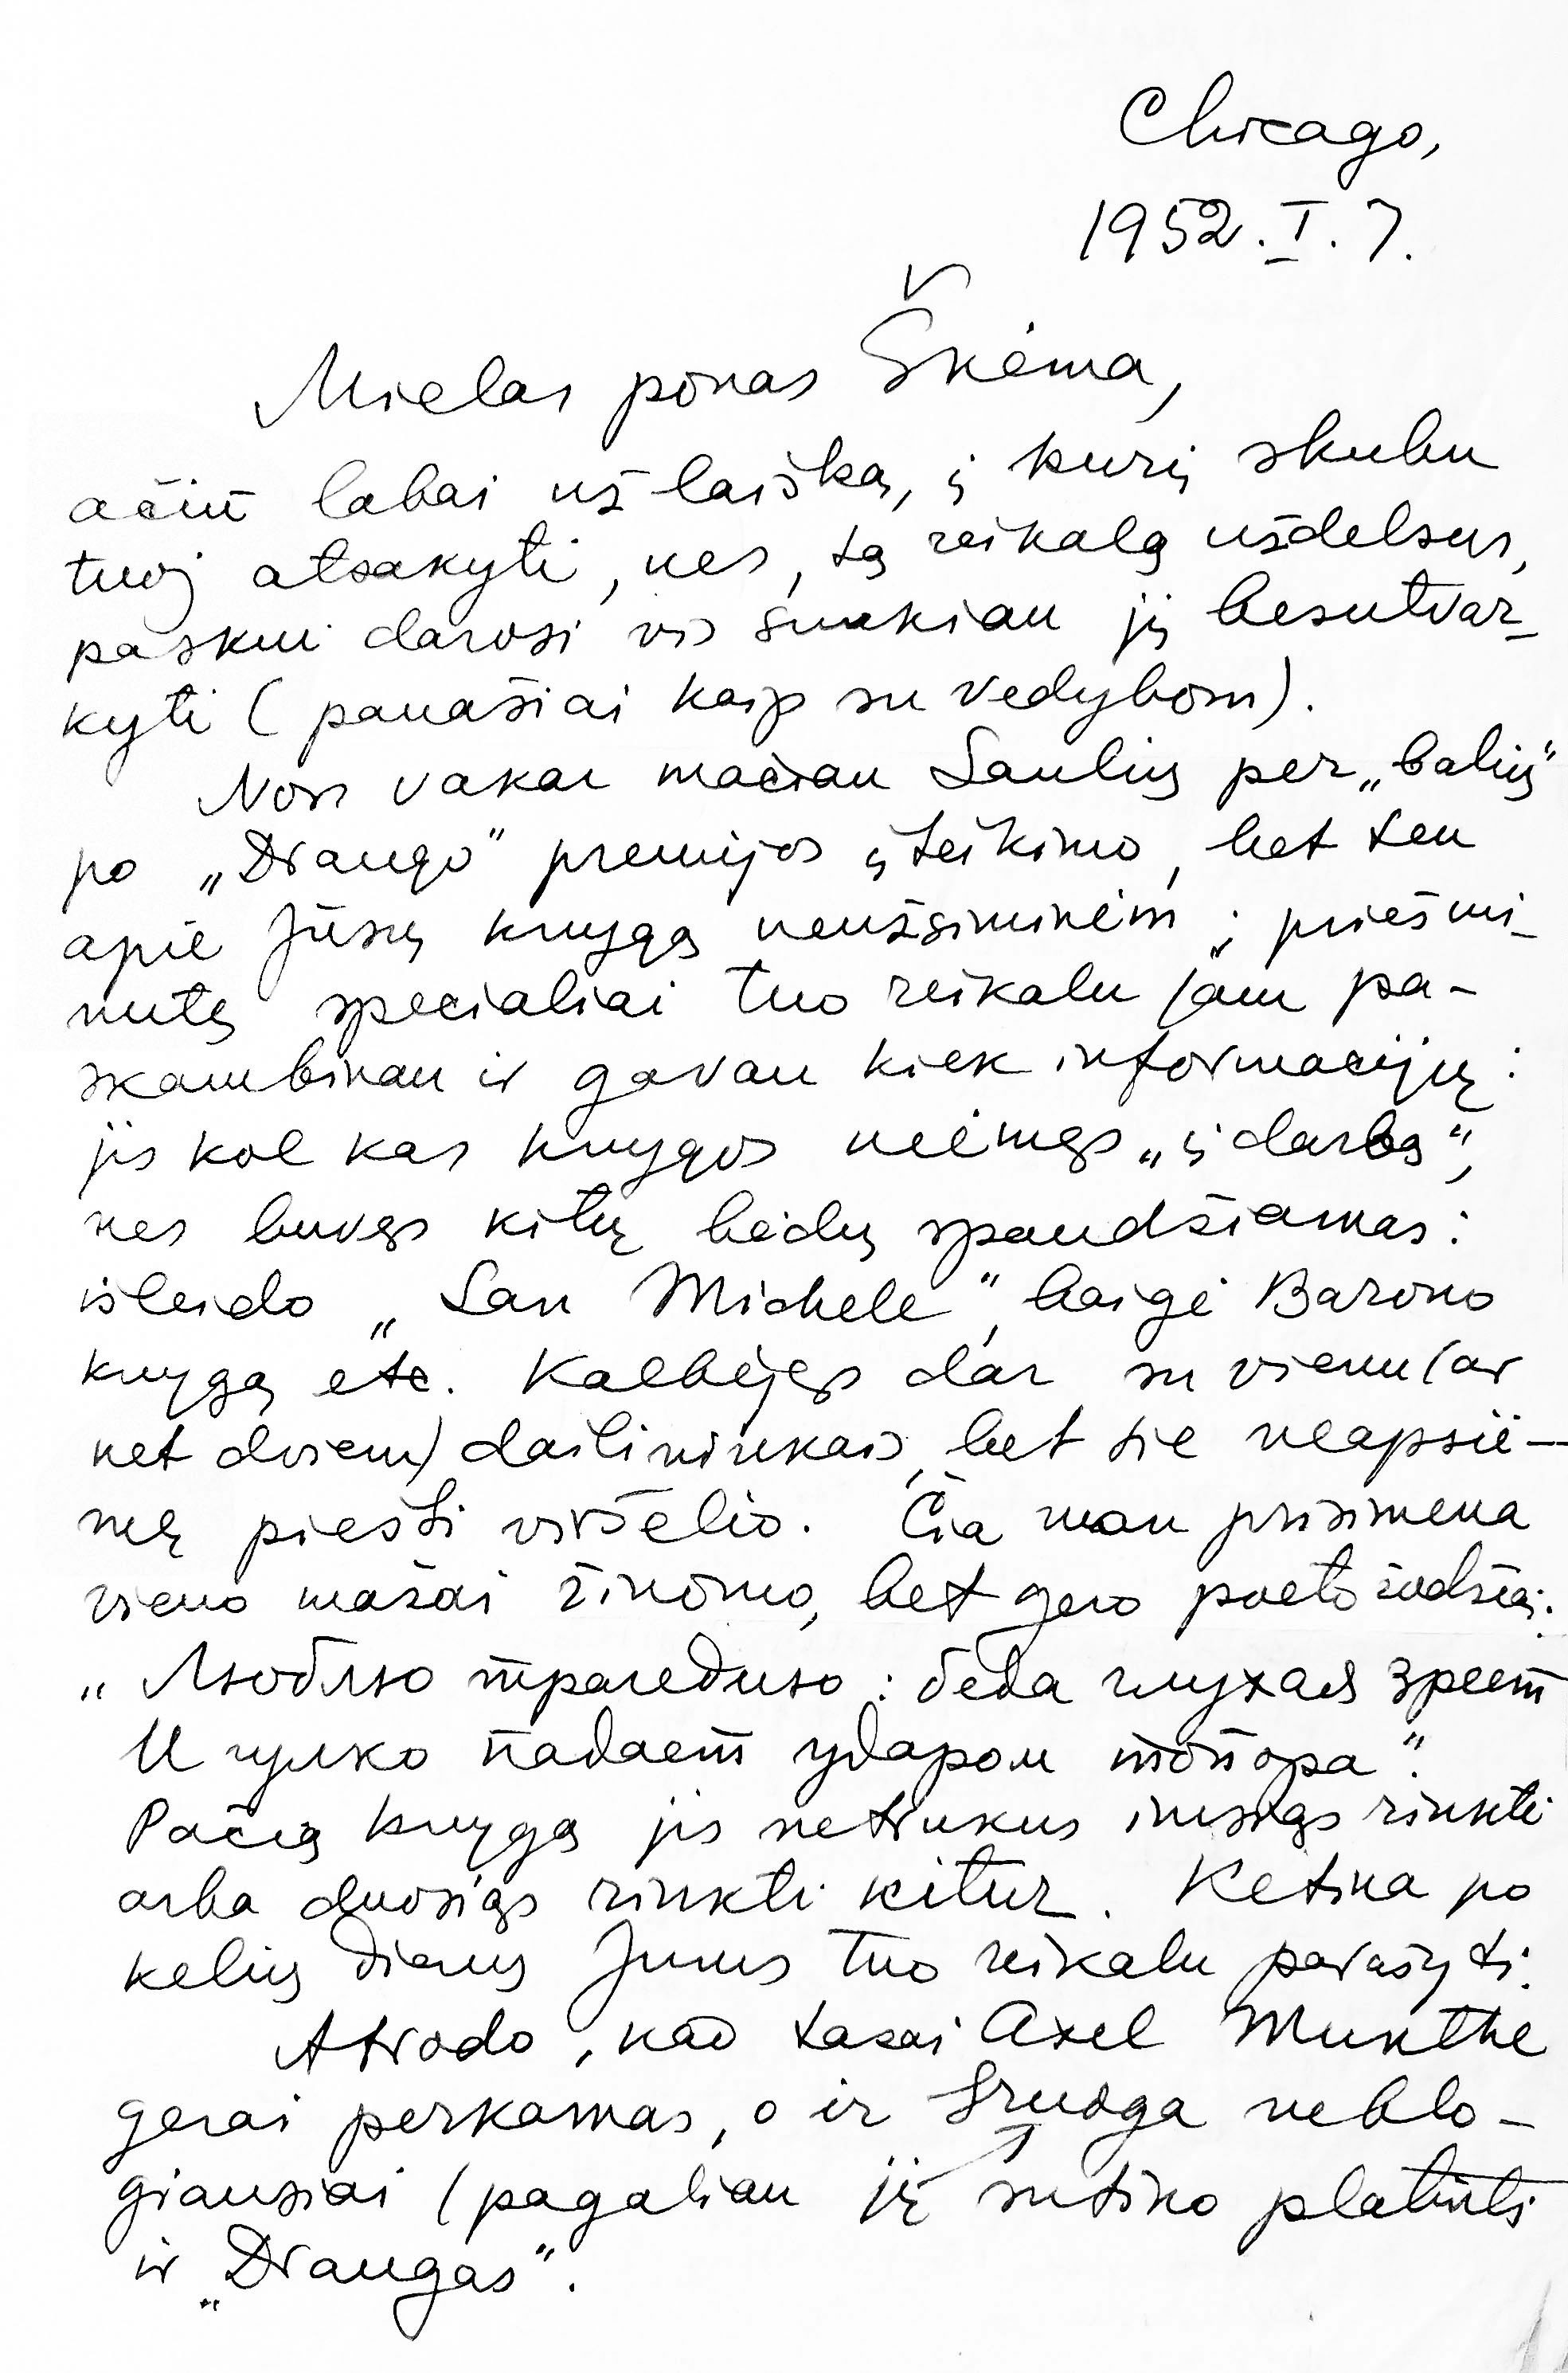 Chicago,
1952.I.7.
Mielas ponas Škėma,
ačiū labai už laišką, į kurį skubu
tuoj atsakyti, nes, tą reikalą uždelsus,
paskui darosi vis sunkiau jį besutvar-
kyti (panašiai kaip su vedybom).
Nors vakar mačiau Saulių per „balių"
po „Draugo" premijos įteikimo, bet ten
apie Jūsų knygą neužsiminėm; prieš mi-
nutę specialiai tuo reikalu jam pa-
skambinau ir gavau kiek informacijų:
jis kol kas knygos neėmęs „į darbą",
nes buvęs kitų bėdų spaudžiamas:
išleido „San Michele", baigė Barono
knygą etc. Kalbėjęs dar su vienu (ar
net dviem) dailininkais, bet tie neapsiė-
mę piešti viršelio. Čia man prisimena
vieno mažai žinomo, bet gero poeto žodžiai:
„Люблю трагедию: беда глухая зреет
И гулко падает ударом топора".
Pačią knygą jis netrukus imsiąs rinkti
arba duosiąs rinkti kitur. Ketina po
kelių dienų Jums tuo reikalu parašyti.
Atrodo, kad tasai Axel Munthe
gerai perkamas, o ir Sruoga neblo-
giausiai (pagaliau jį sutiko platinti
ir „Draugas".